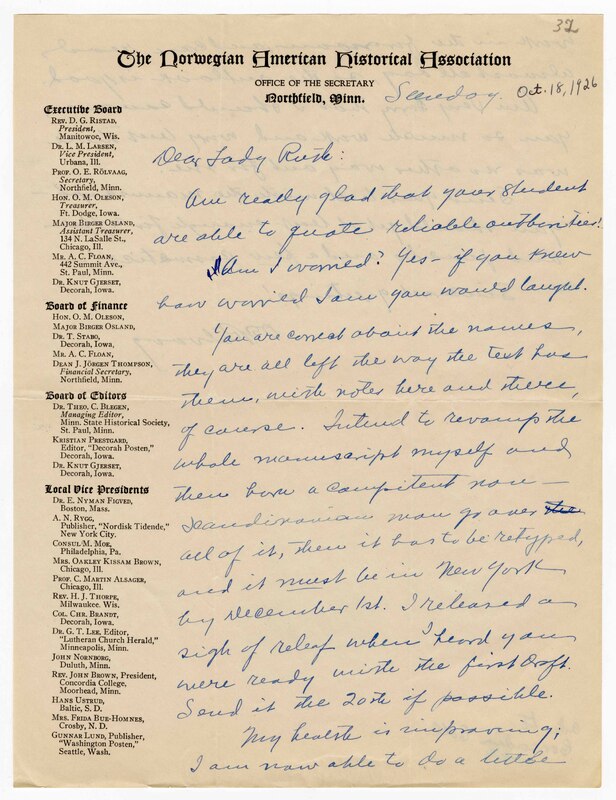 32
The Norwegian American Historical Association
OFFICE OF THE SECRETARY
Northfield, Minn.
Sunday. Oct. 18, 1926
Executive Board
REV. D. G. RISTAD,
President,
Manitowoc, Wis.
DR. L. M. LARSEN,
Vice President,
Urbana, Ill.
PROF. O. E. RÖLVAAG,
Secretary,
Northfield, Minn.
HON. O. M. OLESON,
Treasurer,
Ft. Dodge, Iowa.
MAJOR BIRGER OSLAND,
Assistant Treasurer,
134 N. LaSalle St.,
Chicago, Ill.
MR. A. C. FLOAN,
442 Summit Ave.,
St. Paul, Minn.
DR. KNUT GJERSET,
Decorah, Iowa.
Board of Finance
HON. O. M. OLESON,
MAJOR BIRGER OSLAND,
DR. T. STABO,
Decorah, Iowa.
MR. A. C. FLOAN,
DEAN J. JÖRGEN THOMPSON,
Financial Secretary,
Northfield, Minn.
Board of Editors
DR. THEO. C. BLEGEN,
Managing Editor,
Minn. State Historical Society,
St. Paul, Minn.
KRISTIAN PRESTGARD,
Editor, "Decorah Posten,"
Decorah, Iowa.
DR. KNUT GJERSET,
Decorah, Iowa.
Local Vice Presidents
DR. E. NYMAN FIGVED,
Boston, Mass.
A. N. RYGG,
Publisher, "Nordisk Tidende,"
New York City.
CONSUL M. MOE,
Philadelphia, Pa.
MRS. OAKLEY KISSAM BROWN,
Chicago, Ill.
PROF. C. MARTIN ALSAGER,
Chicago, Ill.
REV. H. J. THORPE,
Milwaukee. Wis.
COL. CHR. BRANDT,
Decorah, Iowa.
DR. G. T. LEE, Editor,
"Lutheran Church Herald,"
Minneapolis, Minn.
JOHN NORNBORG,
Duluth, Minn.
REV. JOHN BROWN, President,
Concordia College,
Moorhead, Minn.
HANS USTRUD,
Baltic, S. D.
MRS. FRIDA BUE-HOMNES,
Crosby, N. D.
GUNNAR LUND, Publisher,
"Washington Posten,"
Seattle, Wash.
Dear Lady Ruth:
Am really glad that your student
are able to quote reliable authorities!
Am I worried? Yes – if you knew
how worried I am you would laught.
You are correct about the names,
they are all left the way the text has
them, with notes here and there,
of course. Intend to revamp the
whole manuscript myself and
then have a compitent non –
Scandinavian man go over the
all of it, then it has to be retyped,
and it must be in New York
by December 1st. I released a
sigh of releaf when I heard you
were ready with the first draft.
Send it the 20th if possible.
My health is improving;
I am now able to do a little